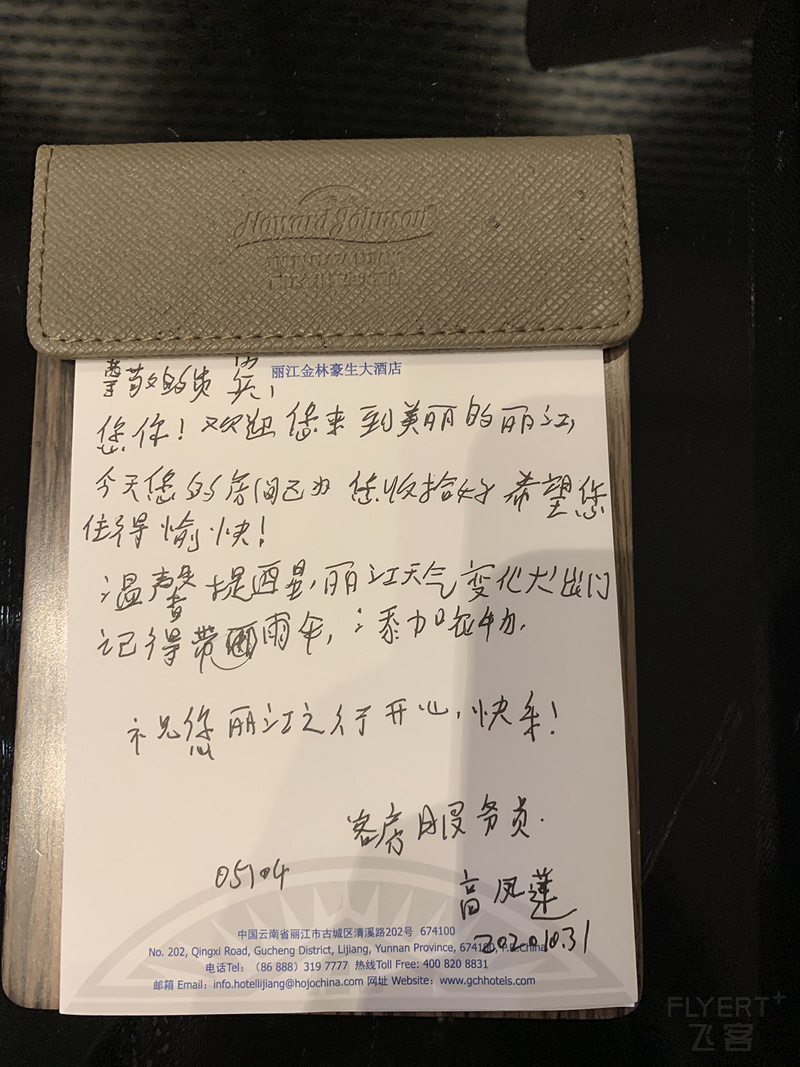 Howard Johnson
丽江金林豪生大酒店
尊敬的贵宾，
您你！欢迎您来到美丽的丽江，
今天您的房间已为您收拾好希望您
住得愉快！
温馨提醒，丽江天气变化大出门
记得带雨伞，添加衣物．
祝您丽江之行开心，快乐！
客房服务员．
05104
高凤莲
2020.10.31
中国云南省丽江市古城区清溪路202号 674100
No. 202, Qingxi Road, Gucheng District, Lijiang, Yunnan Province, 674100, P.R.China
电话Tel：（86 888）319 7777 热线Toll Free: 400 820 8831
邮箱 Email：info.hotellijiang@hojochina.com 网址 Website：www.gchhotels.com
FLYERT+
飞客